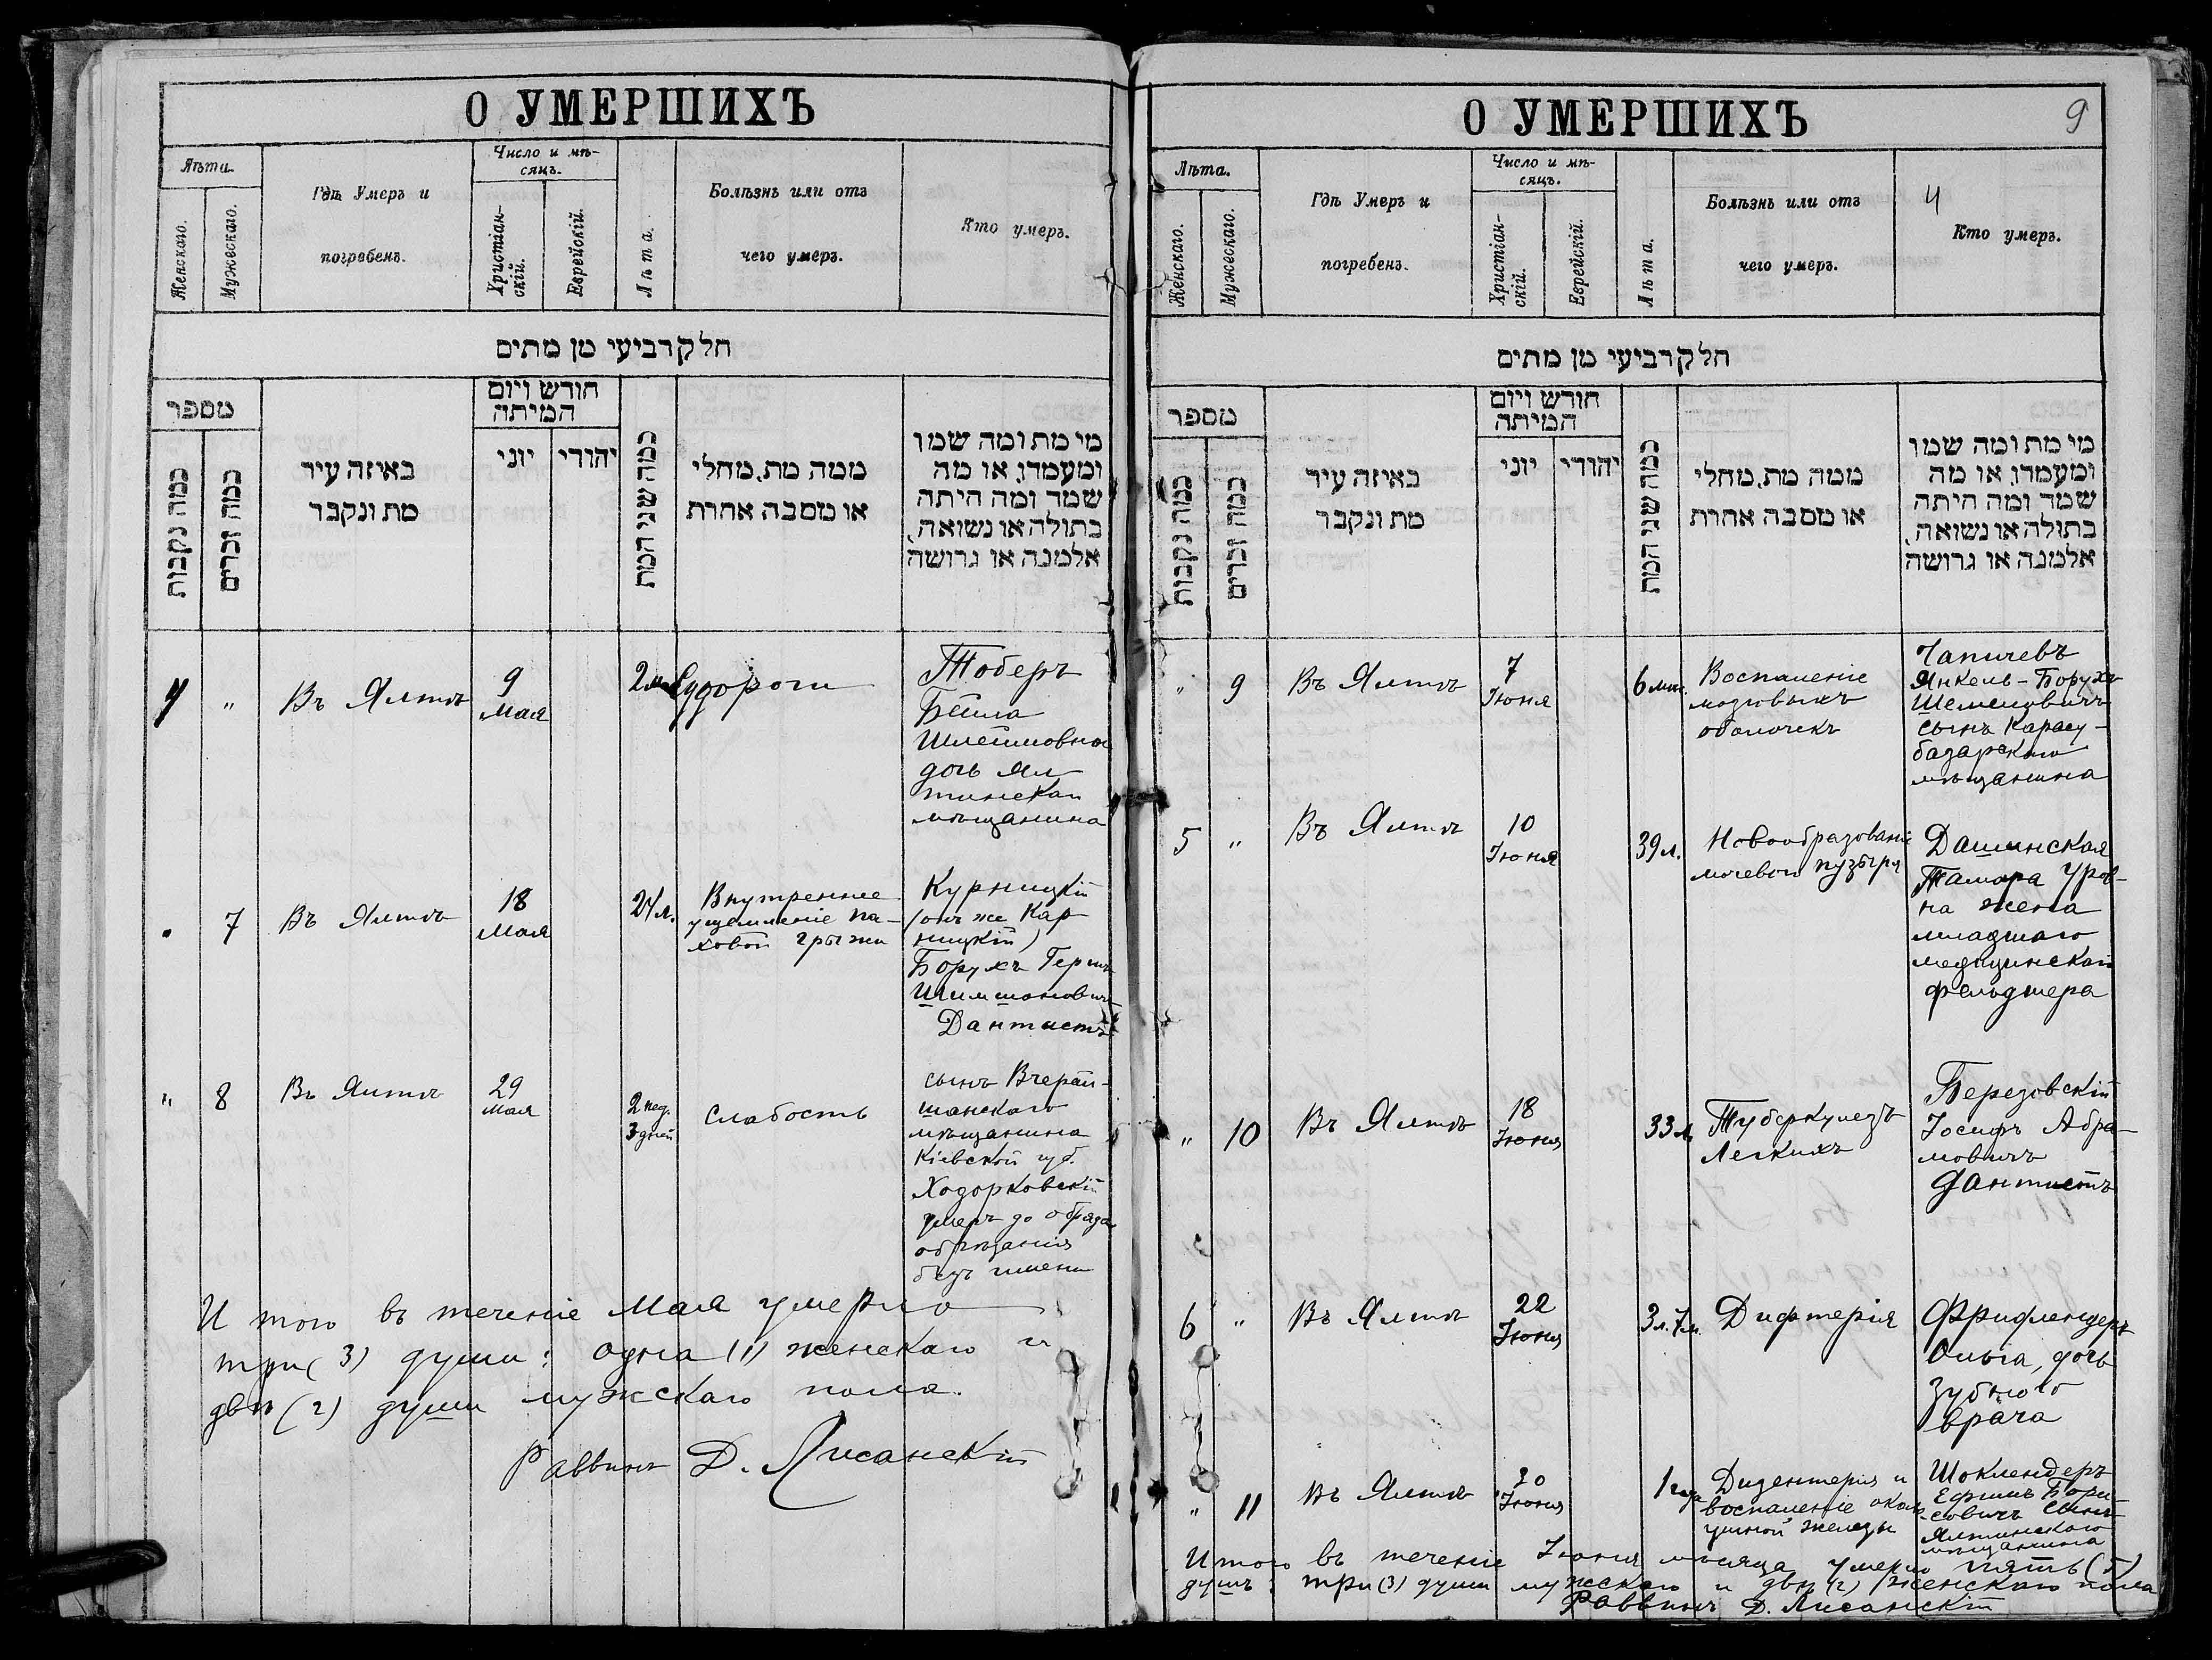 О УМЕРШИХЪ
Лѣта.
Женскаго.
Мужескаго.
Гдѣ Умеръ и
погребенъ.
Число и мѣ-
сяцъ.
Христіан-
скій.
Еврейскій.
Лѣта.
Болѣзнь или отъ
чего умеръ.
Кто умеръ.
חלק רביעי מן מתים
מספר
כמה נקבות
כמה זכרים
באיזה עיר
מת ונקבר
חודש ויום
המיתה
יוני
יהודי
כמה שני המת
ממה מת, מחלי
או מסבה אחרת
מי מת ומה שמו
ומעמדו, או מה
שמד ומה היתה
בתולה או נשואה,
אלמנה או גרושה
4 " Въ Ялтѣ
9
Мая
Судороги
Тоберъ
Бейла
Шлеймовна
дочь Ял
тинскаго
мѣщанина
7 Въ Ялтѣ
18
Мая
24 л.
Внутреннее
ущемленіе па-
ховой грыжи
Курницкій
(онъ же Кар
ницкій)
Борухъ Гершъ
Шимшоновичъ
Дантистъ
" 8 Въ Ялтѣ
29
мая
2 нед.
3 дней
Слабость
сынъ Вчерай-
шанскаго
мѣщанина
Кіевской губ.
Ходорковскій
умеръ до обряда
обрѣзанія
безъ имени
Итого въ теченіе Мая умерло
три (3) души: одна (1) женскаго и
двѣ (2) души мужскаго пола.
Раввинъ Д. Лисанскій
О УМЕРШИХЪ
9
Лѣта.
Женскаго.
Мужескаго.
Гдѣ Умеръ и
погребенъ.
Число и мѣ-
сяцъ.
Христіан-
скій.
Еврейскій.
Лѣта.
Болѣзнь или отъ
чего умеръ.
Ч
Кто умеръ.
חלק רביעי מן מתים
מספר
כמה נקבות
כמה זכרים
באיזה עיר
מת ונקבר
חודש ויום
המיתה
יוני
יהודי
כמה שני המת
ממה מת, מחלי
או מסבה אחרת
מי מת ומה שמו
ומעמדו, או מה
שמד ומה היתה
בתולה או נשואה,
אלמנה או גרושה
" 9 Въ Ялтѣ
7
Іюня
6 мѣс.
Воспаленіе
мозговыхъ
оболочекъ
Чапичевъ
Янкель-Борухъ
сынъ Карасу-
базарскаго
мѣщанина
5 " Въ Ялтѣ
10
Іюня
39 л.
Новообразованіе
мочевого пузыря
Дашинская
Тамара Уров-
на жена
младшаго
медицинскаго
фельдшера
" 10 Въ Ялтѣ
18
Іюня
33 л.
Туберкулезъ
Легкихъ
Березовскій
Іосифъ Абра-
мовичъ
Дантистъ
6 " Въ Ялтѣ
22
Іюня
3 л. 7 м.
Дифтерія
Фрифлендеръ
Ольга, дочь
Зубного
врача
" 11 Въ Ялтѣ
20
Іюня
1 года
Дизентерія и
воспаленіе около
ушной железы
Шоклендеръ
Ефимъ Бори-
совичъ сынъ
Ялтинскаго
мѣщанина
Итого въ теченіе Іюня мѣсяца умерло пять (5)
душъ: три (3) души мужскаго и двѣ (2) женскаго пола
Раввинъ Д. Лисанскій